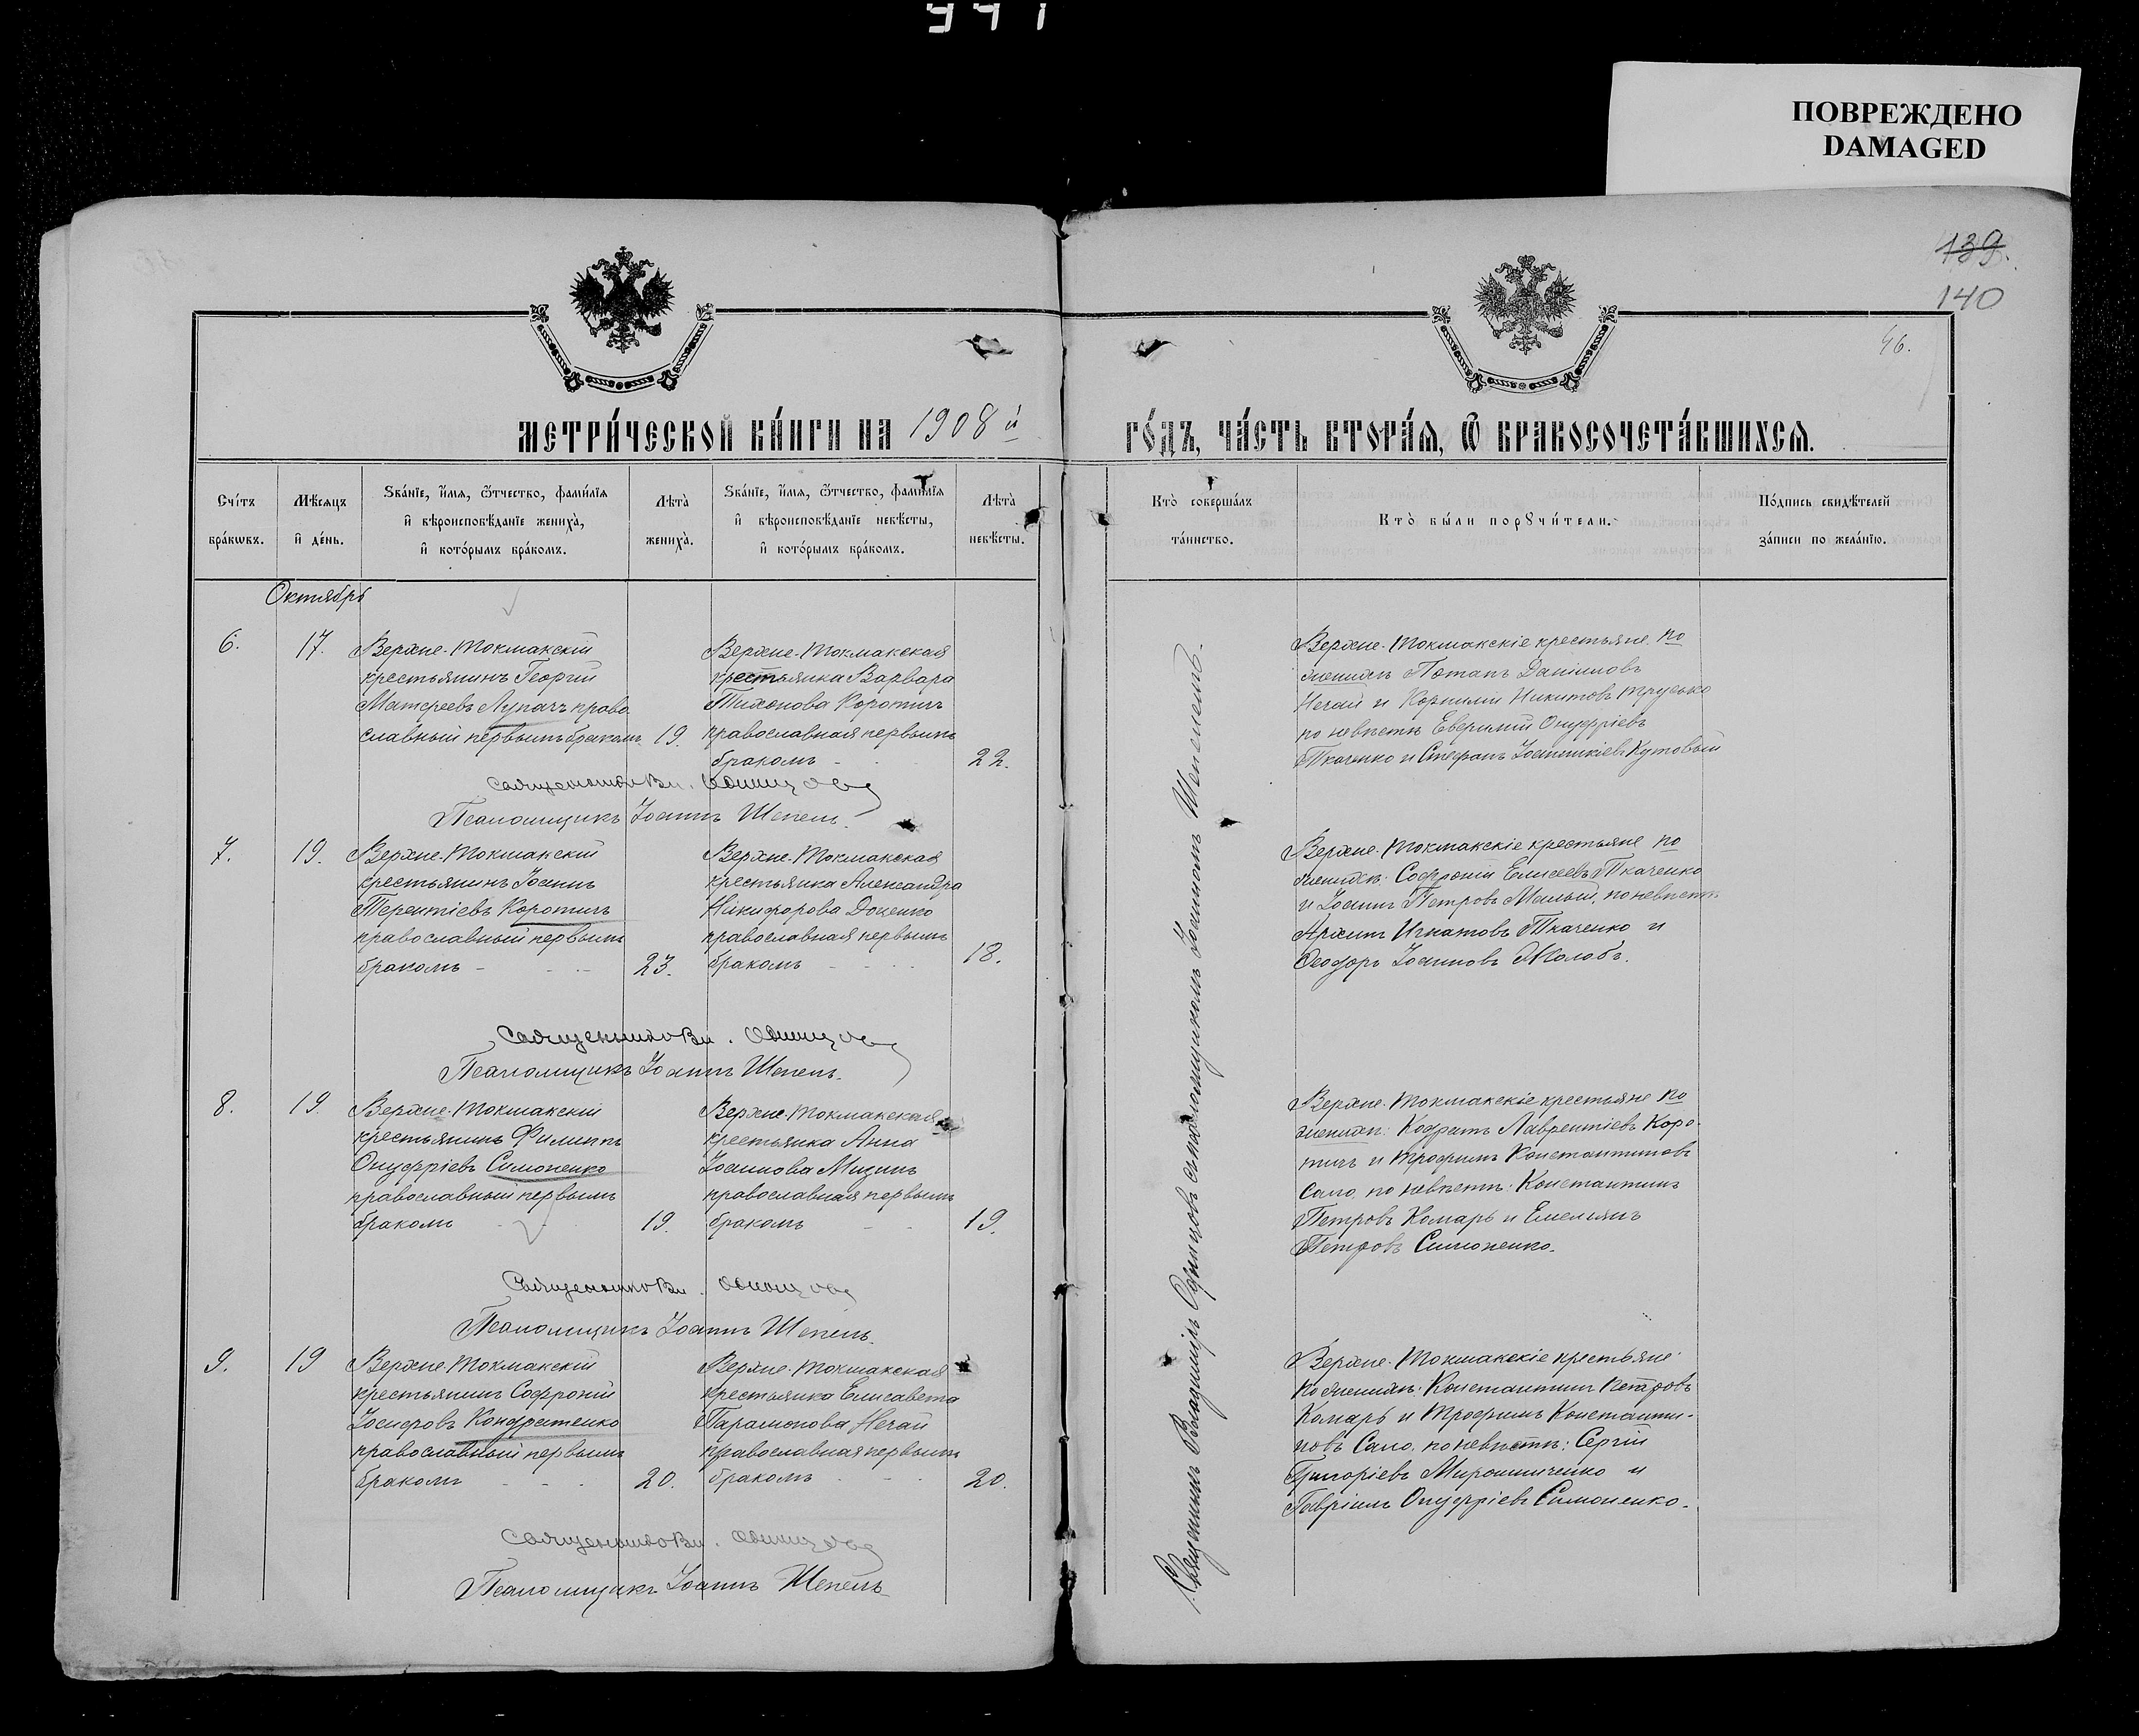 ПОВРЕЖДЕНО
DAMAGED
139.
140
46.
МЕТРИ́ЧЕСКОЙ КНИ́ГИ НА 1908 й
ГО́ДЪ, ЧА́СТЬ ВТОРА́Я, Ѿ БРАКОСОЧЕТА́ВШИХСЯ.
Сче́тъ бра́кωвъ.
Мѣ́сяцъ и҆ де́нь.
Ѕва́нїе, и҆́мя, ѻ҆́тчество, фами́лїя
и҆ вѣроисповѣ́данїе жениха̀,
и҆ кото́рымъ бра́комъ.
Лѣта̀ жениха̀.
Ѕва́нїе, и҆́мя, ѻ҆́тчество, фами́лїя
и҆ вѣроисповѣ́данїе невѣ́сты,
и҆ кото́рымъ бра́комъ.
Лѣта̀ невѣ́сты.
Кто̀ соверша́лъ та́инство.
Кто̀ бы́ли порꙋчи́тели.
По́дпись свидѣ́телей за́писи по жела́нїю.
Октябрь
6. 17.
Верхне-Токмакскій
крестьянинъ Георгій
Матфеевъ Лупачъ право
славный первымъ бракомъ 19.
Верхне-Токмакская
крестьянка Варвара
Тихонова Коротичъ
православная первымъ
бракомъ - 22.
Верхне-Токмакскіе крестьяне по
женихѣ Потапъ Даніиловъ
Нечай и Корнилій Никитовъ Трусько
по невѣстѣ Евфимій Онуфріевъ
Ткаченко и Стефанъ Іоанникіевъ Кутовый
Священникъ Вл. Одинцовъ
Псаломщикъ Іоаннъ Шепель.
7. 19.
Верхне-Токмакскій
крестьянинъ Іоаннъ
Терентіевъ Коротичъ
православный первымъ
бракомъ - 23.
Верхне-Токмакская
крестьянка Александра
Никифорова Доценко
православная первымъ
бракомъ - 18.
Верхне-Токмакскіе крестьяне по
женихѣ: Софроній Елисеевъ Ткаченко
и Іоаннъ Петровъ Малый, по невѣстѣ
Архипъ Игнатовъ Ткаченко и
Феодоръ Іоанновъ Жолобъ.
Священникъ Вл. Одинцовъ
Псаломщикъ Іоаннъ Шепель.
8. 19.
Верхне-Токмакскій
крестьянинъ Филиппъ
Онуфріевъ Симоненко
православный первымъ
бракомъ 19.
Верхне-Токмакская
крестьянка Анна
Іоаннова Мизинъ
православная первымъ
бракомъ 19.
Верхне-Токмакскіе крестьяне по
женихѣ: Кодратъ Лаврентіевъ Коро-
тичъ и Трофимъ Константиновъ
Сало, по невѣстѣ: Константинъ
Петровъ Комарь и Емельянъ
Петровъ Симоненко.
Священникъ Вл. Одинцовъ
Псаломщикъ Іоаннъ Шепель.
9. 19
Верхне-Токмакскій
крестьянинъ Софроній
Іосифовъ Кондратенко
православный первымъ
бракомъ - 20.
Верхне-Токмакская
крестьянка Елисавета
Парамонова Нечай
православная первымъ
бракомъ 20.
Верхне-Токмакскіе крестьяне
по женихѣ: Константинъ Петровъ
Комарь и Трофимъ Константи-
новъ Сало, по невѣстѣ: Сергій
Григоріевъ Мирошниченко и
Гавріилъ Онуфріевъ Симоненко.
Священникъ Вл. Одинцовъ
Псаломщикъ Іоаннъ Шепель
Священникъ Владиміръ Одинцовъ съ псаломщикомъ Іоанномъ Шепелемъ.